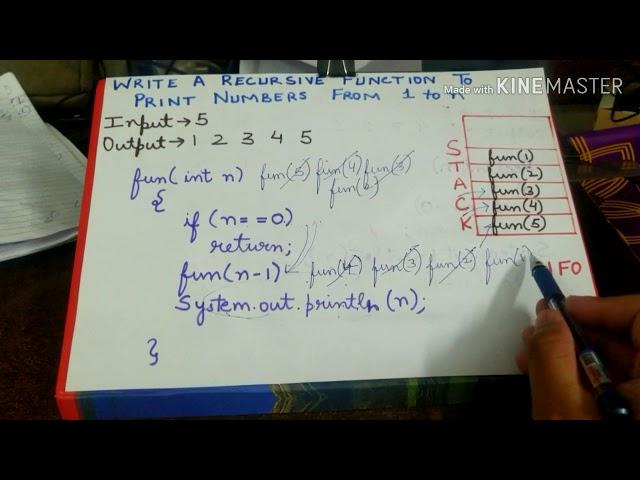 Made with KINEMASTER
WRITE A RECURSIVE FUNCTION TO
PRINT NUMBERS FROM 1 to n
Input → 5
Output → 1 2 3 4 5
fun(int n) fun(5) fun(4) fun(3)
fun(2)
{
if (n==0)
return;
fun(n-1) fun(4) fun(3) fun(2) fun(1)
System.out.println(n);
}
STACK
fun(1)
fun(2)
fun(3)
fun(4)
fun(5)
IFO